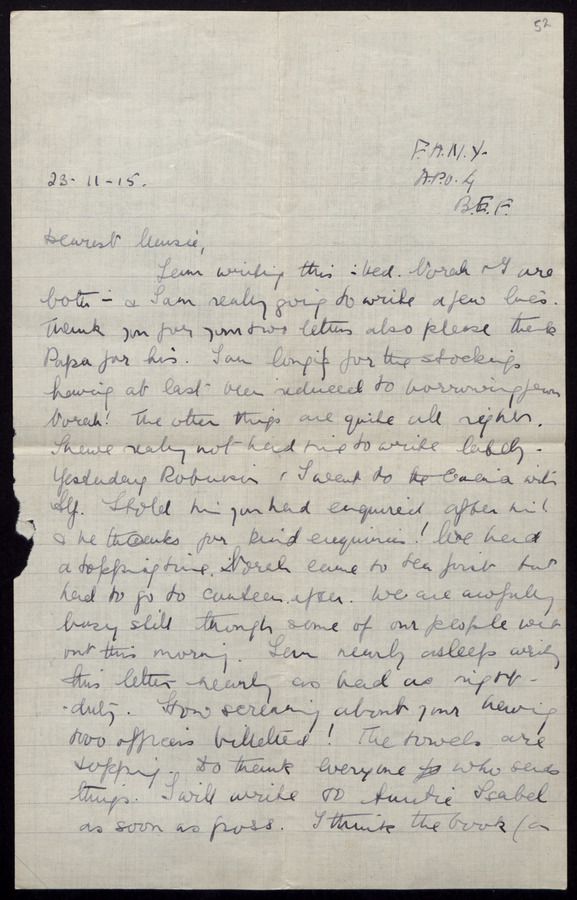 52
F.A.N.Y.
23-11-15. A.P.O. 4
B.E.F.
Dearest Mousie,
I am writing this in bed. Norah & I are
both in & I am really going to write a few lines.
Thank you for your two letters also please thank
Papa for his. I am longing for the stockings
having at last been reduced to borrowing from
Norah! The other things are quite all right.
I have really not had time to write lately.
Yesterday Robinson & I went to the with
Alf. I told him you had enquired after him!
& he thanks for kind enquiries! We had
a topping time. Norah came to tea first but
had to go to canteen after. We are awfully
busy still though some of our people went
out this morning. I am nearly asleep writing
this letter nearly as bad as night-
-duty. How screaming about your having
two officers billetted! The towels are
topping. Do thank everyone who sends
things. I will write to Auntie Isabel
as soon as poss. I think the book (a